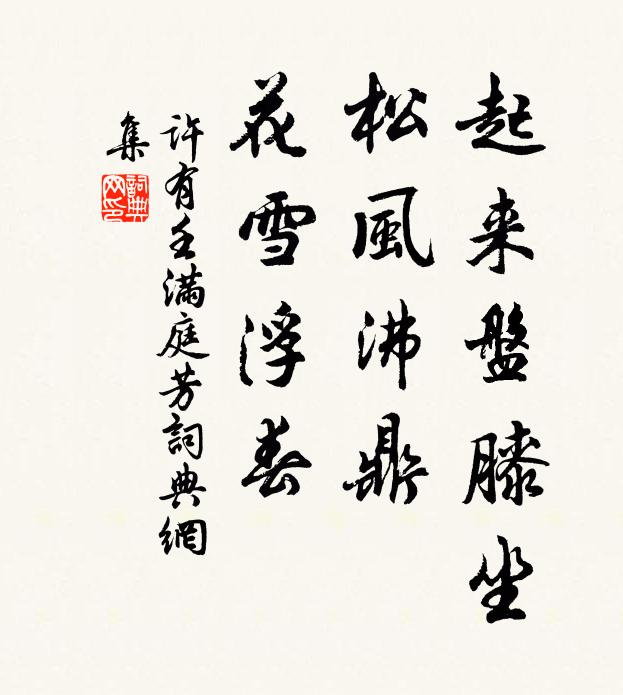 起来盤膝坐
松風沸鼎
花雪浮春
許有壬滿庭芳詞典網
集
詞典網印